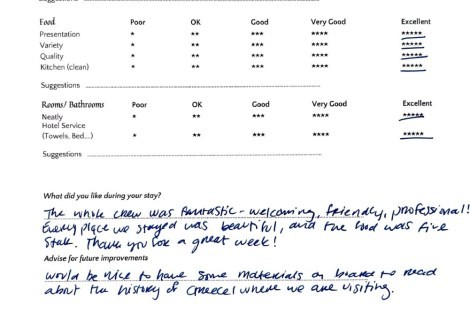 Suggestions
Food Poor OK Good Very Good Excellent
Presentation * ** *** **** *****
Variety * ** *** **** *****
Quality * ** *** **** *****
Kitchen (clean) * ** *** **** *****
Suggestions
Rooms/ Bathrooms Poor OK Good Very Good Excellent
Neatly * ** *** **** *****
Hotel Service
(Towels, Bed...) * ** *** **** *****
Suggestions
What did you like during your stay?
The whole crew was fantastic - welcoming, friendly, professional!
Every place we stayed was beautiful, and the food was five
star. Thank you for a great week!
Advise for future improvements
would be nice to have some materials on board to read
about the history of Greece/ where we are visiting.